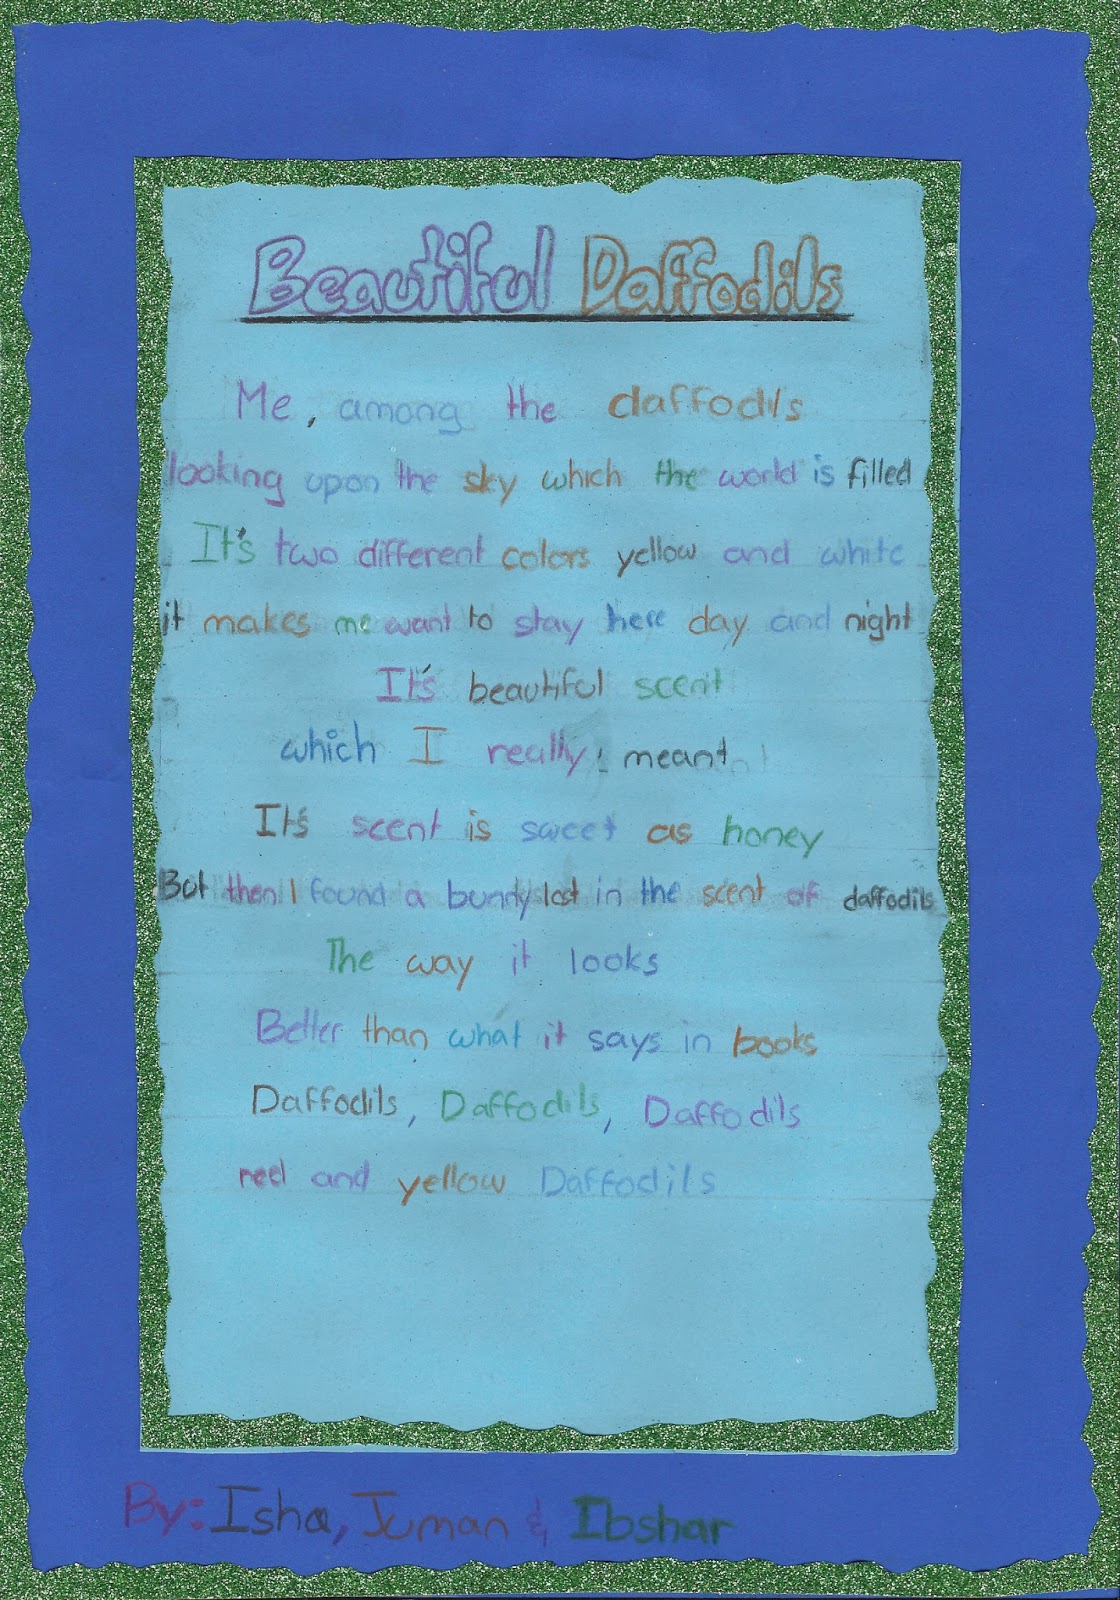 Beautiful Daffodils
Me, among the daffodils
looking upon the sky which the world is filled
It's two different colors yellow and white
it makes me want to stay here day and night
It's beautiful scent
which I really, meant
It's scent is sweet as honey
But then I found a bunny lost in the scent of daffodils
The way it looks
Better than what it says in books
Daffodils, Daffodils, Daffodils
red and yellow Daffodils
By: Isha, Juman & Ibshar